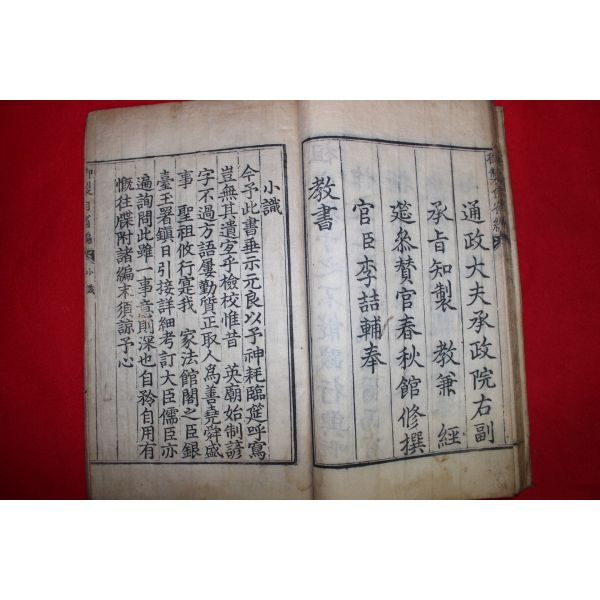 通政大夫承政院右副
承旨知製 教兼 經
筵參贊官春秋館修撰
官臣李喆輔奉
教書
小識
今予此書垂示元良以予神耗臨筵呼寫
豈無其遺字乎檢校惟昔 英廟始制諺
字不過方語屢勤質正取人為善堯舜盛
事 聖祖攸行寔我 家法館閣之臣銀
臺玉署鎮日引接詳細考訂大臣儒臣亦
遍詢問此雖一事意則深也自矜自用有
慨往牒附諸編末須諒予心
御製自省編 小識